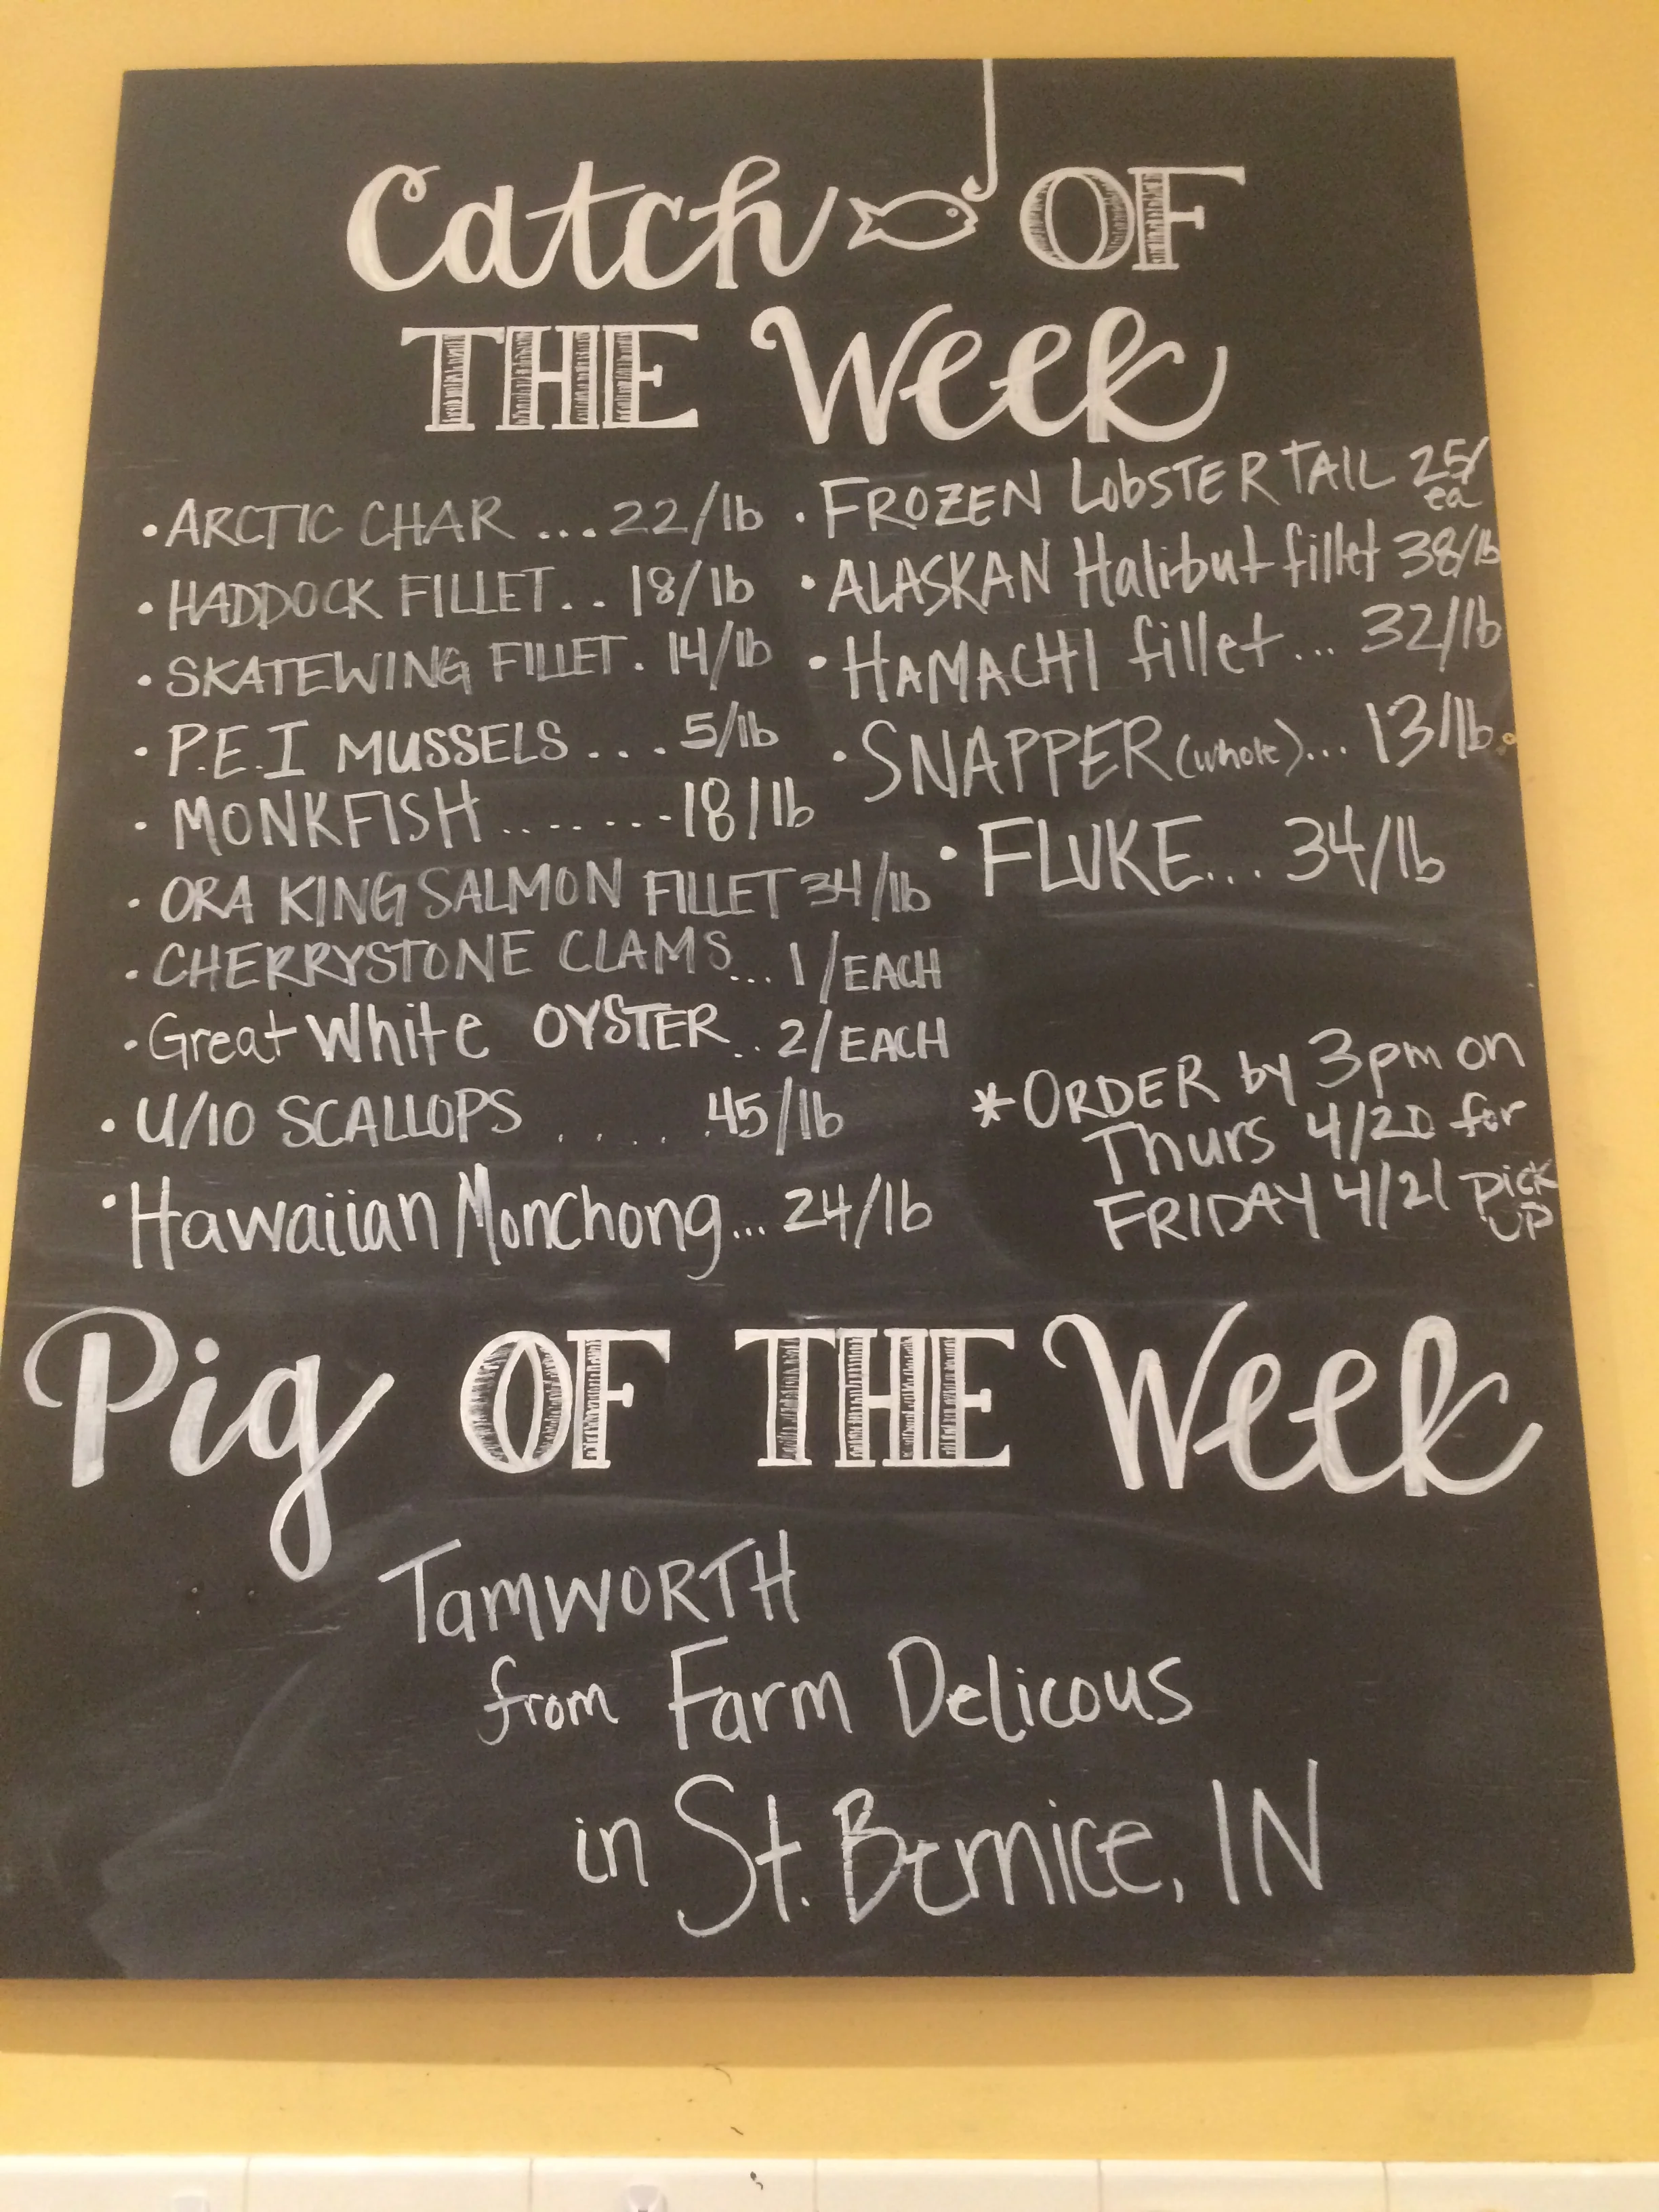 Catch OF
THE Week
• ARCTIC CHAR ... 22/lb
• HADDOCK FILLET.. 18/lb
• SKATEWING FILLET. 14/lb
• P.E.I MUSSELS .... 5/lb
• MONKFISH ........ 18/lb
• ORA KING SALMON FILLET 34/lb
• CHERRYSTONE CLAMS... 1/EACH
• Great White OYSTER .. 2/EACH
• U/10 SCALLOPS ..... 45/lb
• Hawaiian Monchong... 24/lb
• FROZEN LobSTER TAIL 25/
ea
• ALASKAN Halibut fillet 38/lb
• HAMACHI fillet... 32/lb
• SNAPPER (whole)... 13/lb.
• FLUKE... 34/lb
* ORDER by 3pm on
Thurs 4/20 for
FRIDAY 4/21 pick
UP
Pig OF THE Week
TamWORTH
from Farm Delicous
in St. Bernice, IN